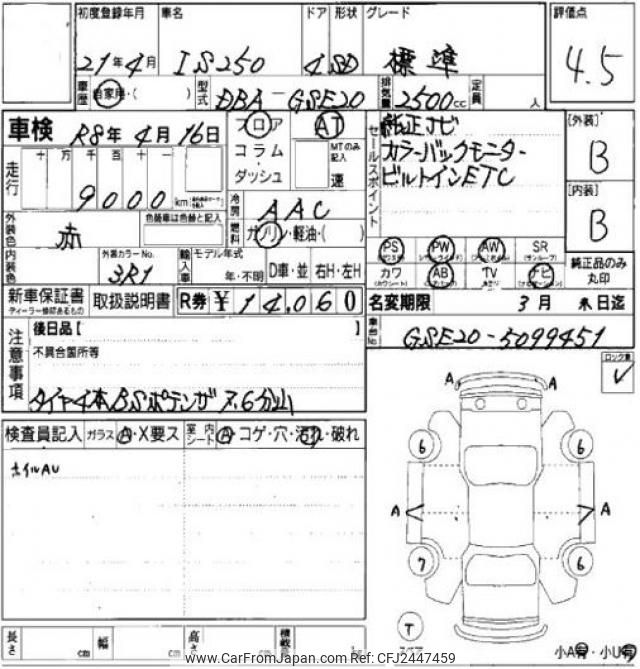 初度登録年月 車名 ドア 形状 グレード 評価点
21年4月 IS250 4 SD 標準 4.5
車歴 自家用・( ) 型式 DBA-GSE20 排気量 2500cc 定員 人
車検 R8年4月16日 フロア AT セールスポイント 純正ナビ [外装]
コラム MTのみ記入 カラーバックモニター B
走行 十万千百十一 ダッシュ 速 ビルトインETC
9000km [内装]
冷房 AAC B
外装色 赤 色替車は色替と記入 燃料 ガソリン・軽油・( )
PS PW AW SR
内装色 外装カラーNo. 3R1 輸入車 モデル年式 年・不明 D車・並 右H・左H カワ AB TV ナビ 純正品のみ丸印
新車保証書 取扱説明書 R券 ¥14,060 名変期限 3月 末日迄
ディーラー捺印あるもの
注意事項 後日品【 】 車台No. GSE20-5099451
不具合箇所等 ロック有
タイヤ4本BSポテンザ 7.6分山
検査員記入 ガラス A・X要ス 室内シート A・コゲ・穴・汚れ・破れ
ホイルAU
A A
6 6
A A
7 6
T
長さ cm 幅 cm 高さ cm 積載量 kg スペア 小A有・小U有
www.CarFromJapan.com Ref CFJ2447459